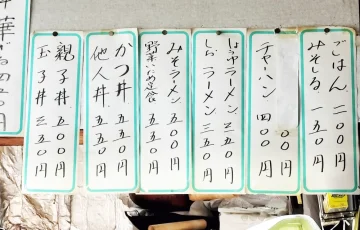 ごはん 二〇〇円
みそしる 一五〇円
チャーハン 四〇〇円
しょうゆラーメン 三五〇円
しおラーメン 三五〇円
みそラーメン 五〇〇円
野菜いため定食 五五〇円
かつ丼 五五〇円
他人丼 五五〇円
親子丼 五〇〇円
玉子丼 三五〇円